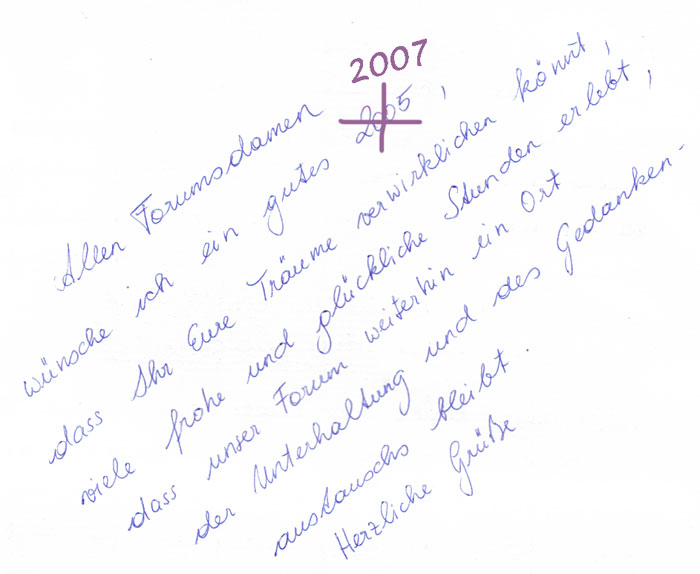 2007
Allen Forumsdamen
wünsche ich ein gutes 2005,
dass Ihr Eure Träume verwirklichen könnt,
viele frohe und glückliche Stunden erlebt,
dass unser Forum weiterhin ein Ort
der Unterhaltung und des Gedanken-
austauschs bleibt.
Herzliche Grüße